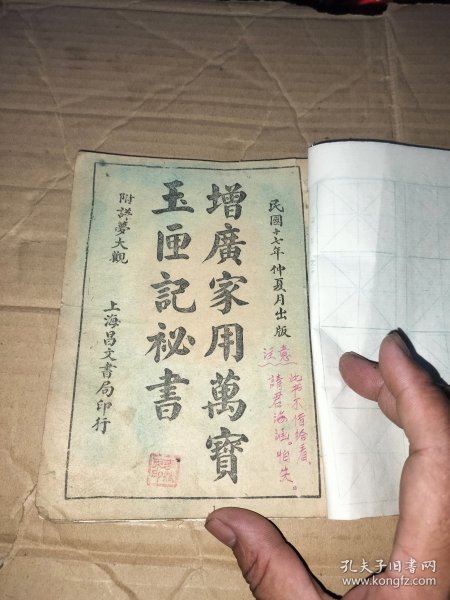 民國十七年仲夏月出版
增廣家用萬寶
玉匣記祕書
附註夢大觀
上海昌文書局印行
注意
此书不借给看,
請君海涵。怕失。
孔夫子旧书网
www.kongfz.com